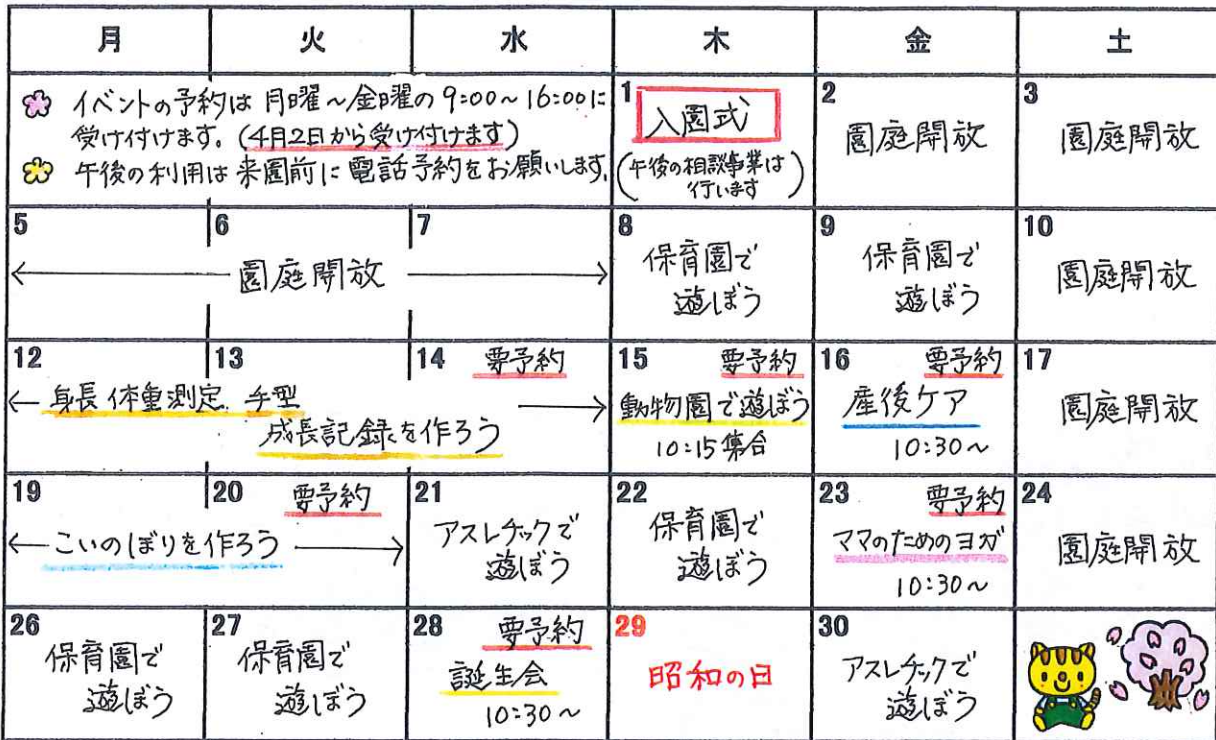 月 火 水 木 金 土
イベントの予約は 月曜～金曜の 9:00～16:00に
受け付けます。(4月2日から受け付けます)
午後の利用は 来園前に 電話予約をお願いします。
1
入園式
(午後の相談事業は
行います)
2
園庭開放
3
園庭開放
5 6 7
園庭開放
8
保育園で
遊ぼう
9
保育園で
遊ぼう
10
園庭開放
12 13 14 要予約
身長 体重測定 手型
成長記録を作ろう
15 要予約
動物園で遊ぼう
10:15 集合
16 要予約
産後ケア
10:30～
17
園庭開放
19 20 要予約
こいのぼりを作ろう
21
アスレチックで
遊ぼう
22
保育園で
遊ぼう
23 要予約
ママのためのヨガ
10:30～
24
園庭開放
26
保育園で
遊ぼう
27
保育園で
遊ぼう
28 要予約
誕生会
10:30～
29
昭和の日
30
アスレチックで
遊ぼう